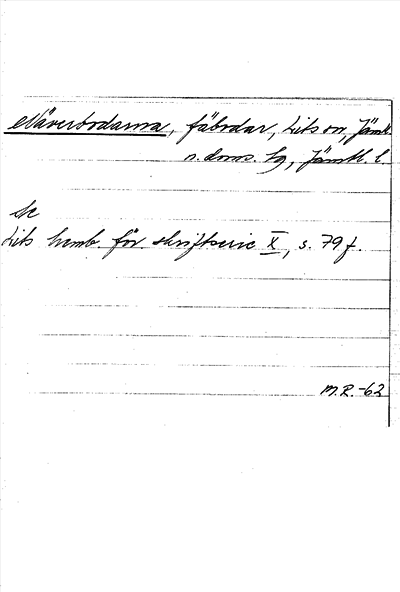 Näverbodarna, fäbodar, Lits sn, Jämtl.
n. doms. tg, Jämtl. l.
Se
Lits hemb. för. skriftserie X, s. 79 f.
M.R.-62